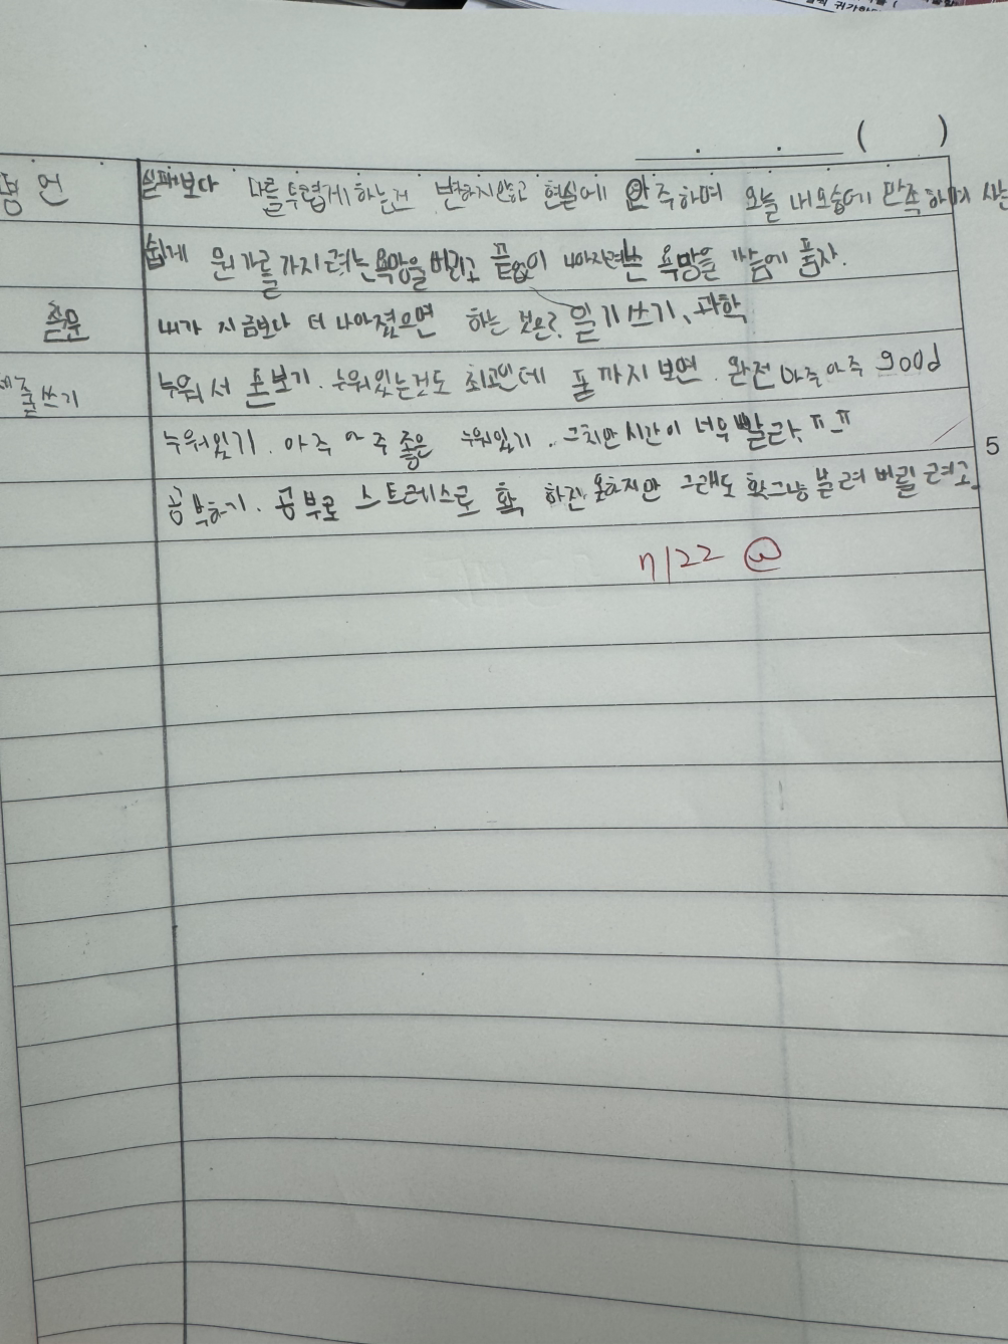 ( )
명언 실패보다 나를 두렵게 하는건 변하지않고 현실에 안주하며 오늘 내모습에 만족하며 사는
쉽게 뭔가를 가지려는 욕망을 버리고 끝없이 나아지려는 욕망을 가슴에 품자.
질문 내가 지금보다 더 나아졌으면 하는 것은? 일기쓰기, 과학
세줄쓰기 누워서 폰보기. 누워있는것도 최고인데 폰까지 보면 완전 아주아주 good
누워있기. 아주 아주 좋은 누워있기. 그치만 시간이 너무 빨라, ㅠㅠ
5
공부하기. 공부로 스트레스로 확 하진 못하지만 그래도 확그냥 분려 버릴 려고
7/22